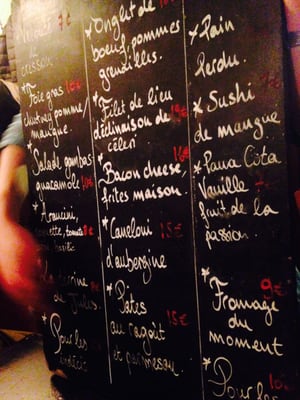 7€
de
cresson.
* Foie gras 10€
chutney pomme/
mangue.
* Salade gambas
guacamole 10€
* 
tomate 8€
basilic
terrine
de
* Pour les
* Onglet de 16€
boeuf, pommes
grenailles.
* Filet de lieu
déclinaison de
céleri
* Bacon cheese,
frites maison.
* Caneloni 15€
d'aubergine
* Patis
au ragoût 15€
et parmesan.
* Pain
Perdu. 7€
* Sushi
de mangue
* Pana Cota
Vanille
fruit de la
passion.
* Fromage 9€
du
moment
* Pour les
10€